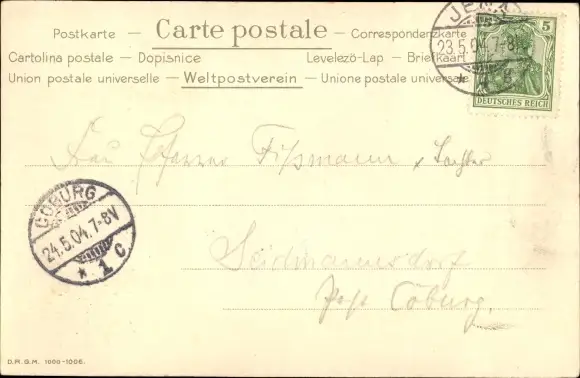 Postkarte — Carte postale — Correspondenzkarte
Cartolina postale — Dopisnice Levelezö-Lap — Briefkaart
Union postale universelle — Weltpostverein — Unione postale universale
JENA
23.5.04.7-8
5
DEUTSCHES REICH
Frau Pfarrer Fißmann & Tochter
COBURG
24.5.04.7-8V
* 1 c
Seidmannsdorf
Post Coburg.
D.R.G.M. 1000-1006.